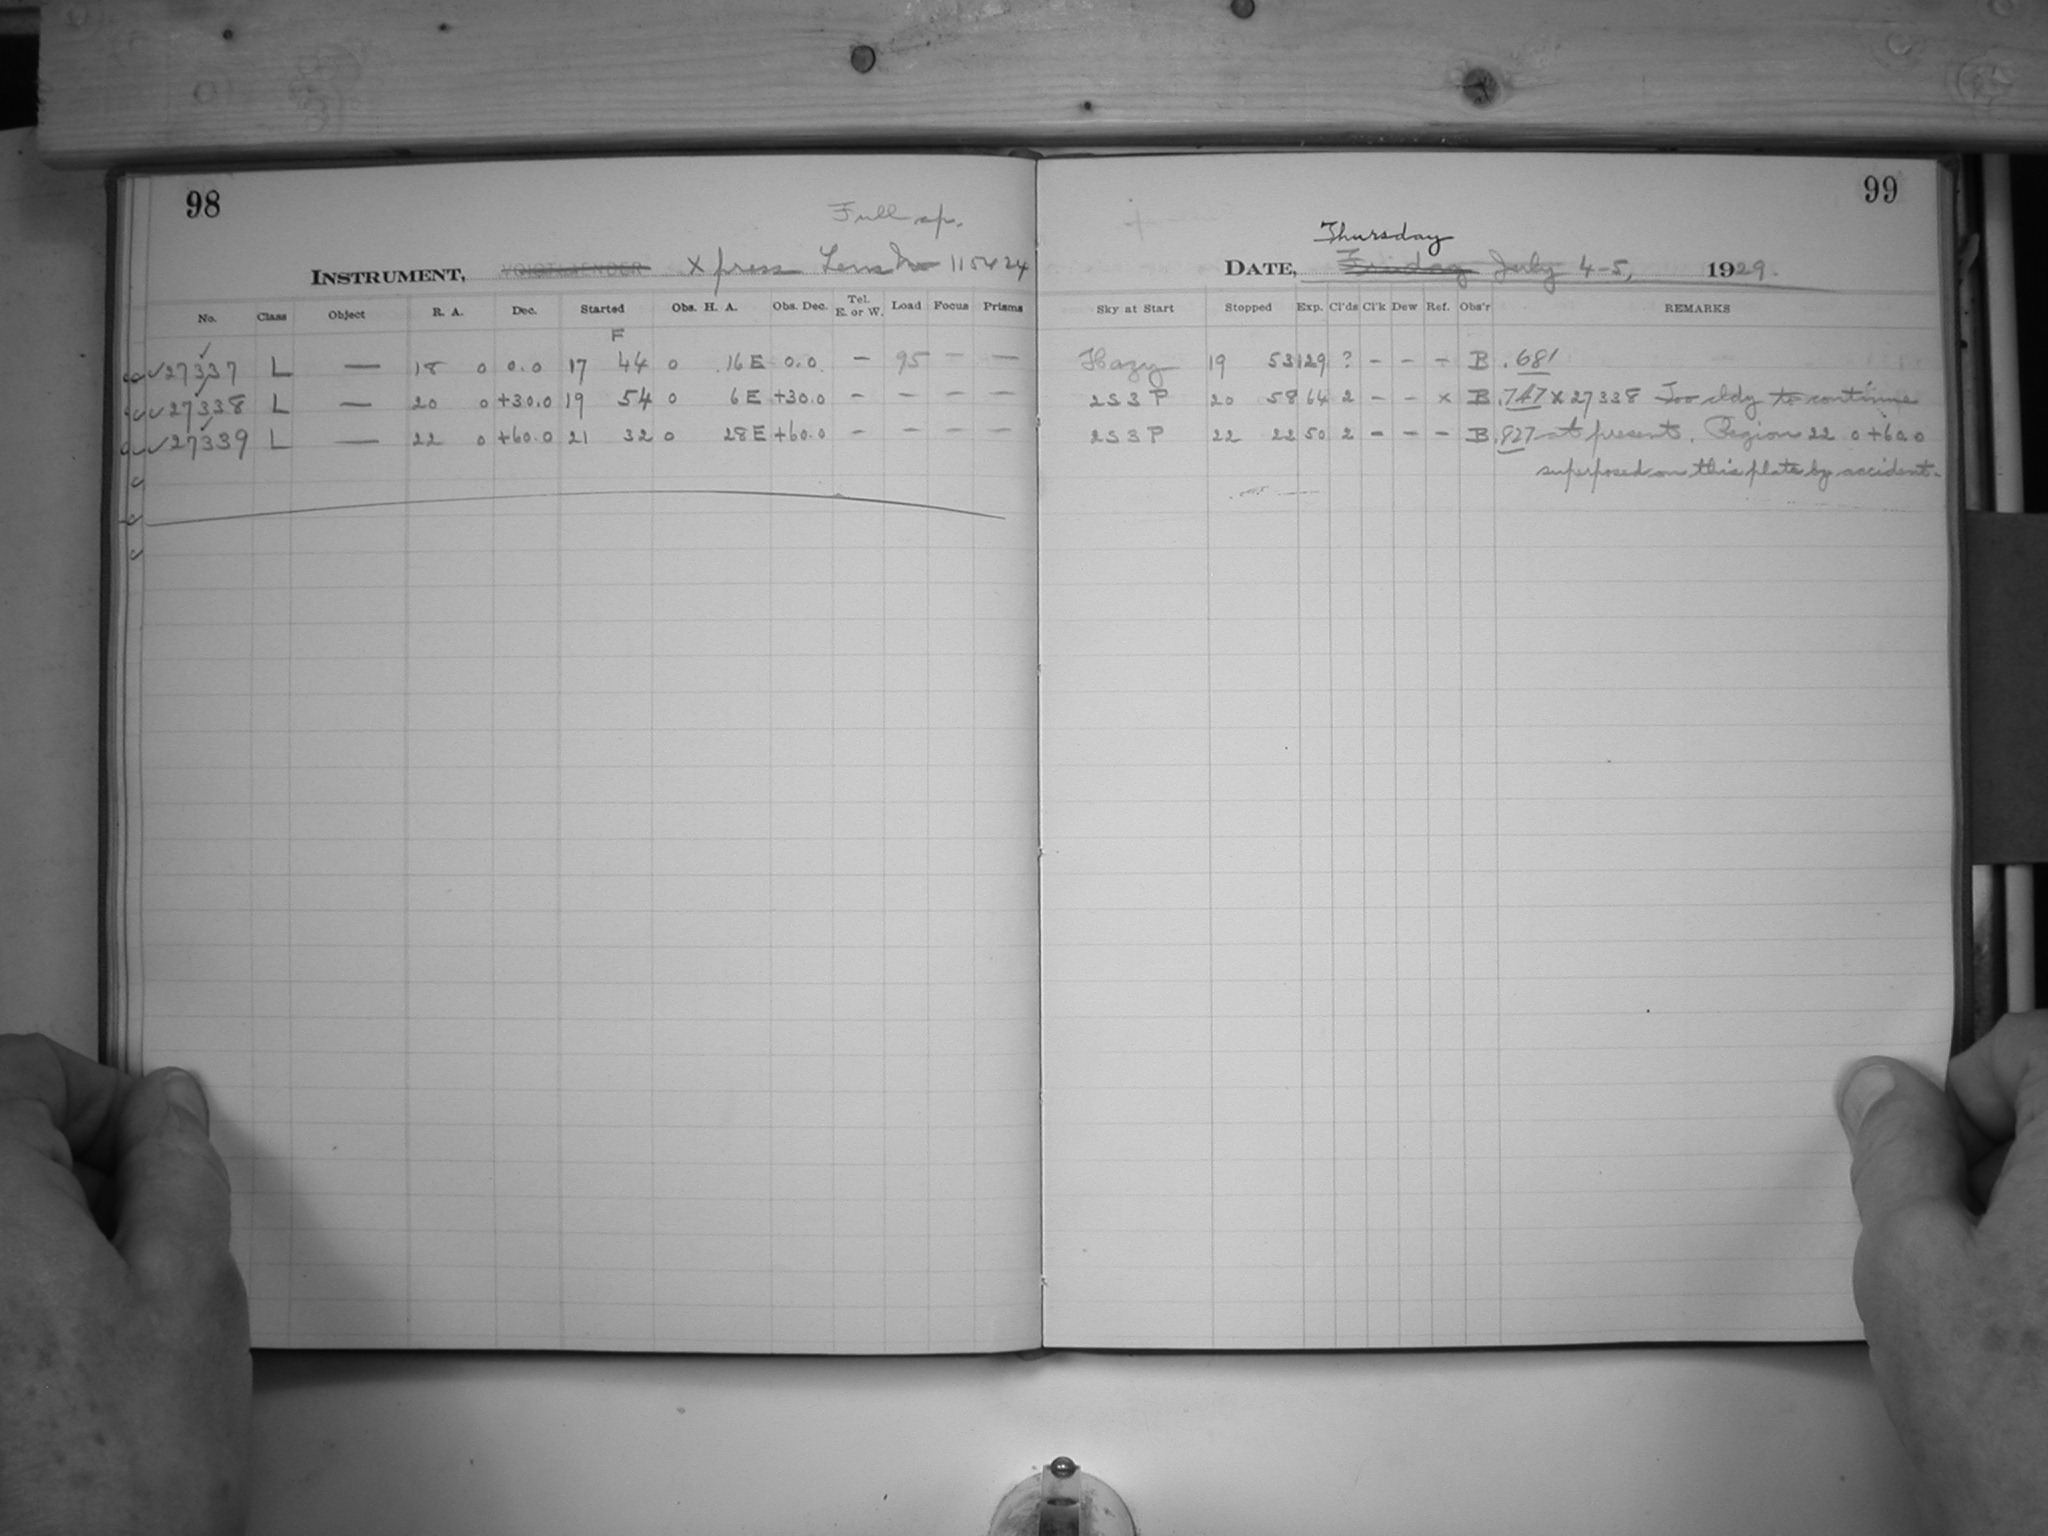 98
Full ap.
INSTRUMENT, VOIGTLAENDER Xpress Lens No 115424
No. Class Object R. A. Dec. Started Obs. H. A. Obs. Dec. Tel. E. or W. Load Focus Prisms
F
✓27337 L — 18 0 0.0 17 44 0 16 E 0.0 — 95 — —
✓27338 L — 20 0 +30.0 19 54 0 6 E +30.0 — — — —
✓27339 L — 22 0 +60.0 21 32 0 28 E +60.0 — — — —
99
Thursday
DATE, Friday July 4-5, 1929.
Sky at Start Stopped Exp. Cl'ds Cl'k Dew Ref. Obs'r REMARKS
Hazy 19 53 129 ? - - - B .681
2 S 3 P 20 58 64 2 - - x B .747 x 27338 Too cldy to continue
2 S 3 P 22 22 50 2 - - - B .827 at present. Region 22 0 +60.0
superposed on this plate by accident.